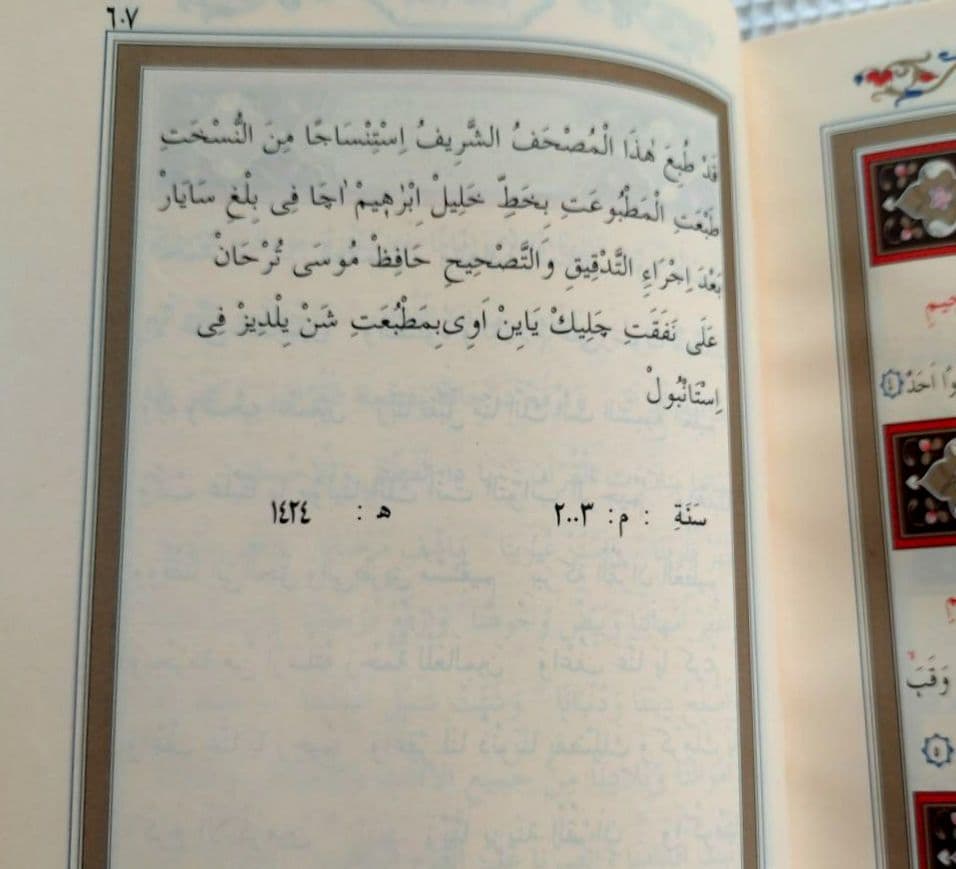 ٦٠٧
قَدْ طُبِعَ هٰذَا الْمُصْحَفُ الشَّرِيفُ اِسْتِنْسَاخًا مِنَ النُّسْخَتِ
طُبْعَتِ الْمَطْبُوعَتِ بِخَطِّ خَلِيلْ اِبْرٰهِيمْ اچَا فِى بِلْغِ سَايَارْ
بَعْدَ اِجْرَاءِ التَّدْقِيقِ وَالتَّصْحِيحِ حَافِظْ مُوسَى تُرْحَانْ
عَلَى نَفَقَتِ چَلِيكْ يَايِنْ اَوِى بِمَطْبُعَتِ شَنْ يِلْدِيزْ فِى
اِسْتَانْبُولْ
سَنَةِ : م: ٢٠٠٣ ه : ١٤٢٤
وًا اَحَدٌ ٤
وَقَبَ
٥